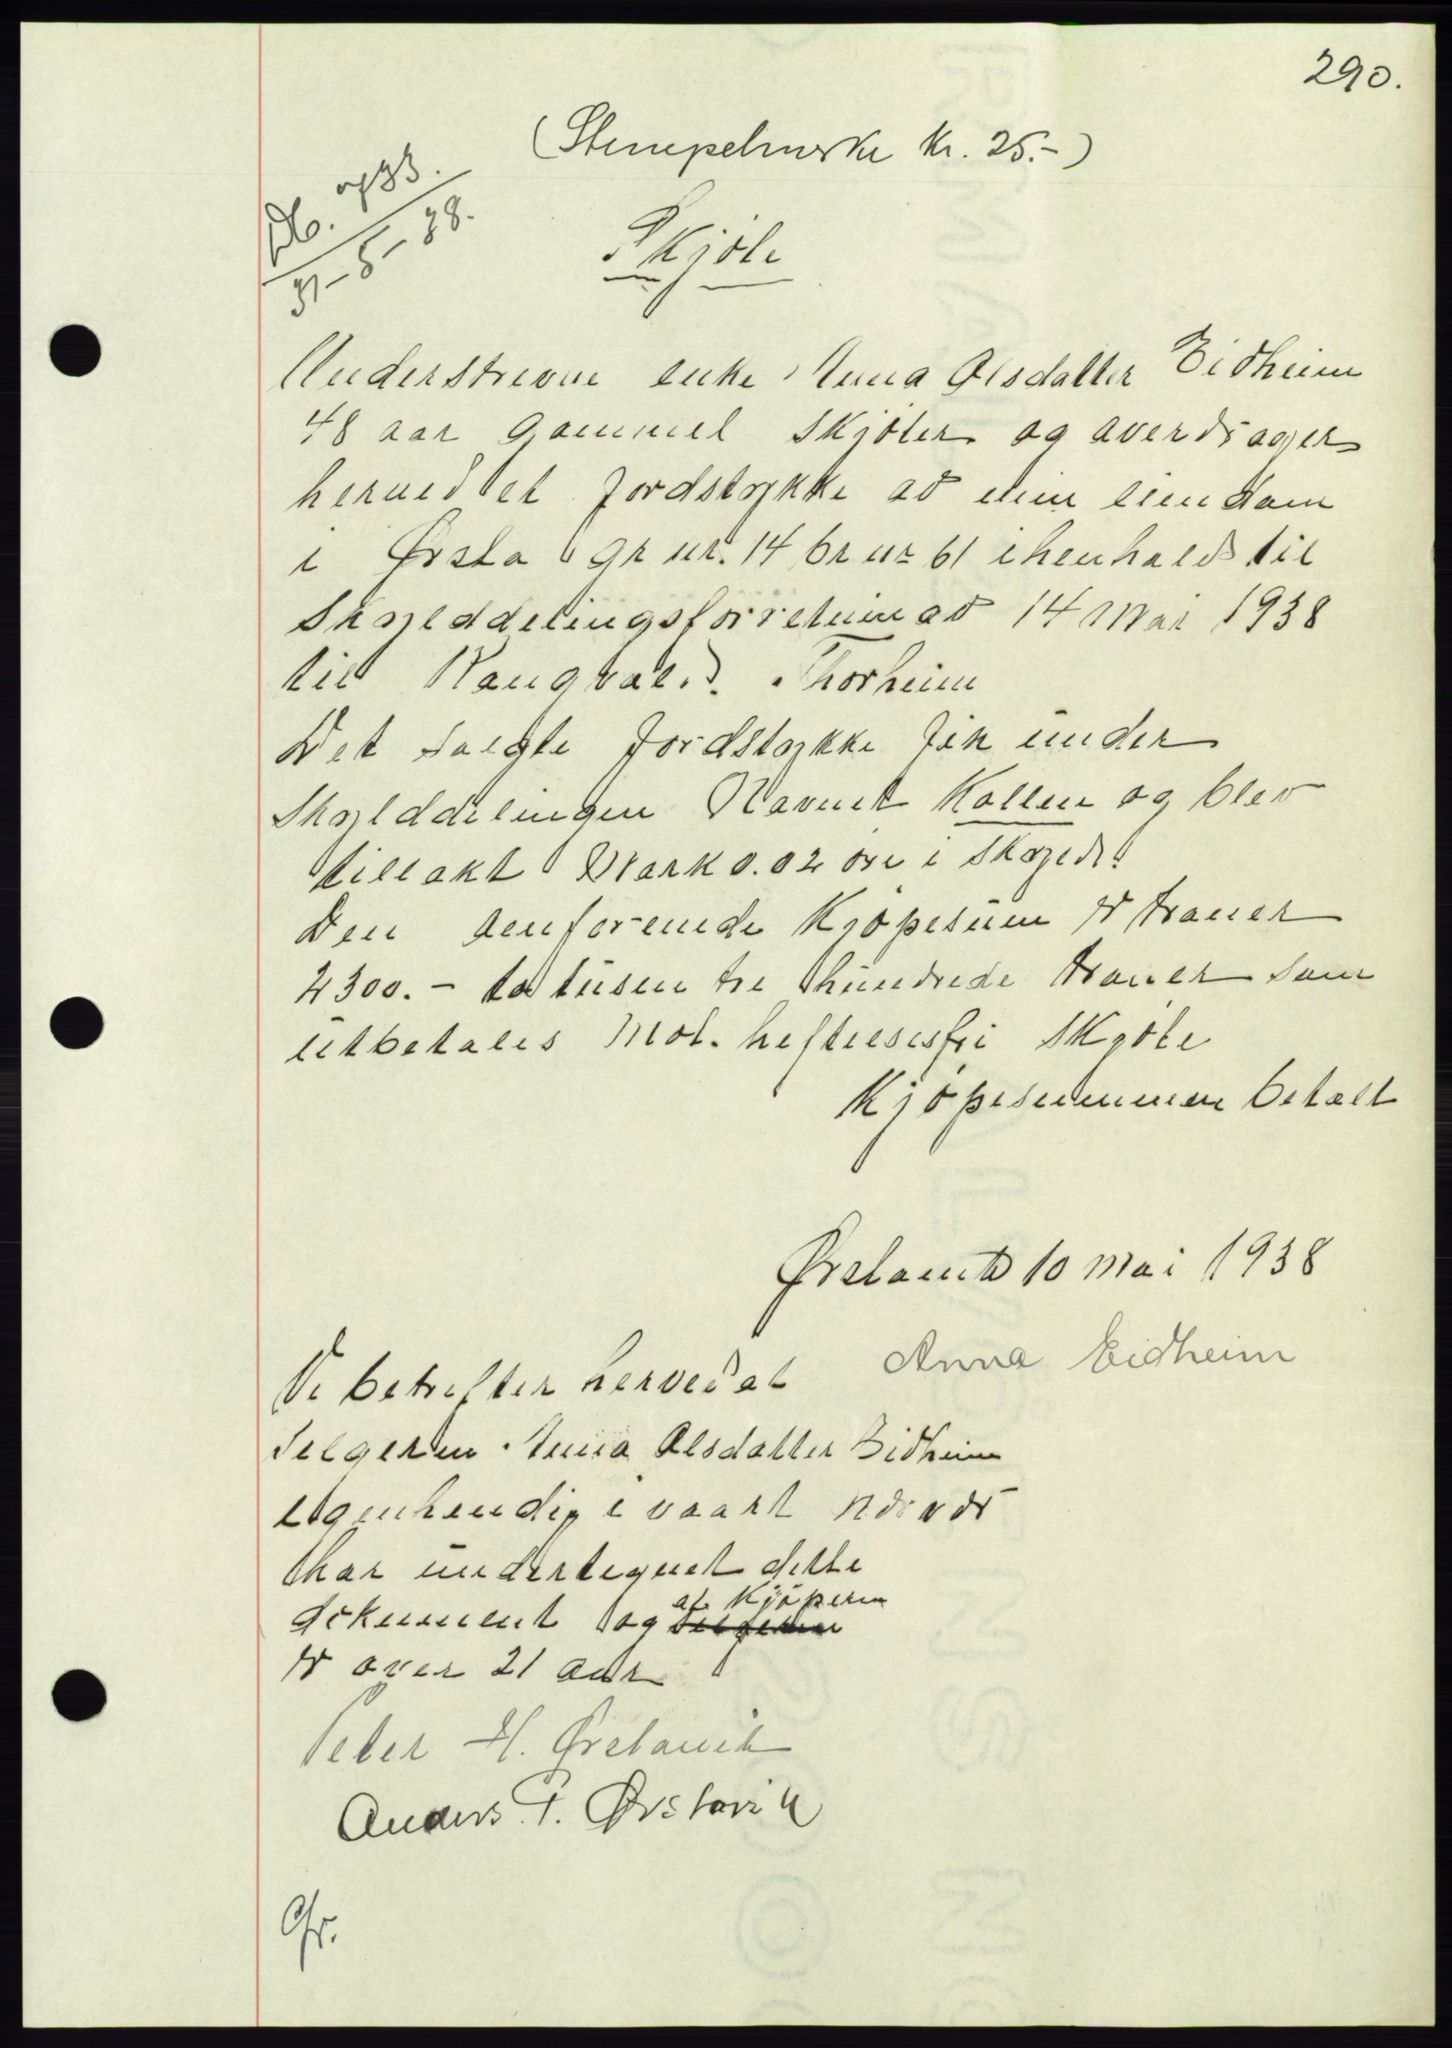 290.
(Stempelmerke kr. 25.-)
Db. 0733.
31-5-38.
Skjöte
Understrevne enke Anna Olsdatter Eidheim
48 aar gammel skjöter og averdrager
herved et jordstykke av min eiendom
i Ørsta gr nr. 14 br nr 61 i henhold til
Skylddelingsforretning av 14 mai 1938
til Rangvald. Thorheim
Det solgte jordstykke fik under
Skylddelingen Navnet Kollen og blev
tillakt Mark 0.02 öre i skyld.
Den omforende Kjöpesum er kroner
2300.- to tusen tre hundrede kroner som
utbetales mot. heftelsesfri skjöte
Kjöpesummen betalt
Ørstavik 10 mai 1938
Anna Eidheim
Vi betrefter herved at
Selgeren Anna Olsdatter Eidheim
egenhendig i vaart nærvær
har undertegnet dette
dokument og selgeren at Kjöperen
er over 21 aar
Peter H. Ørstavik
Anders P. Ørstavik
Gr.